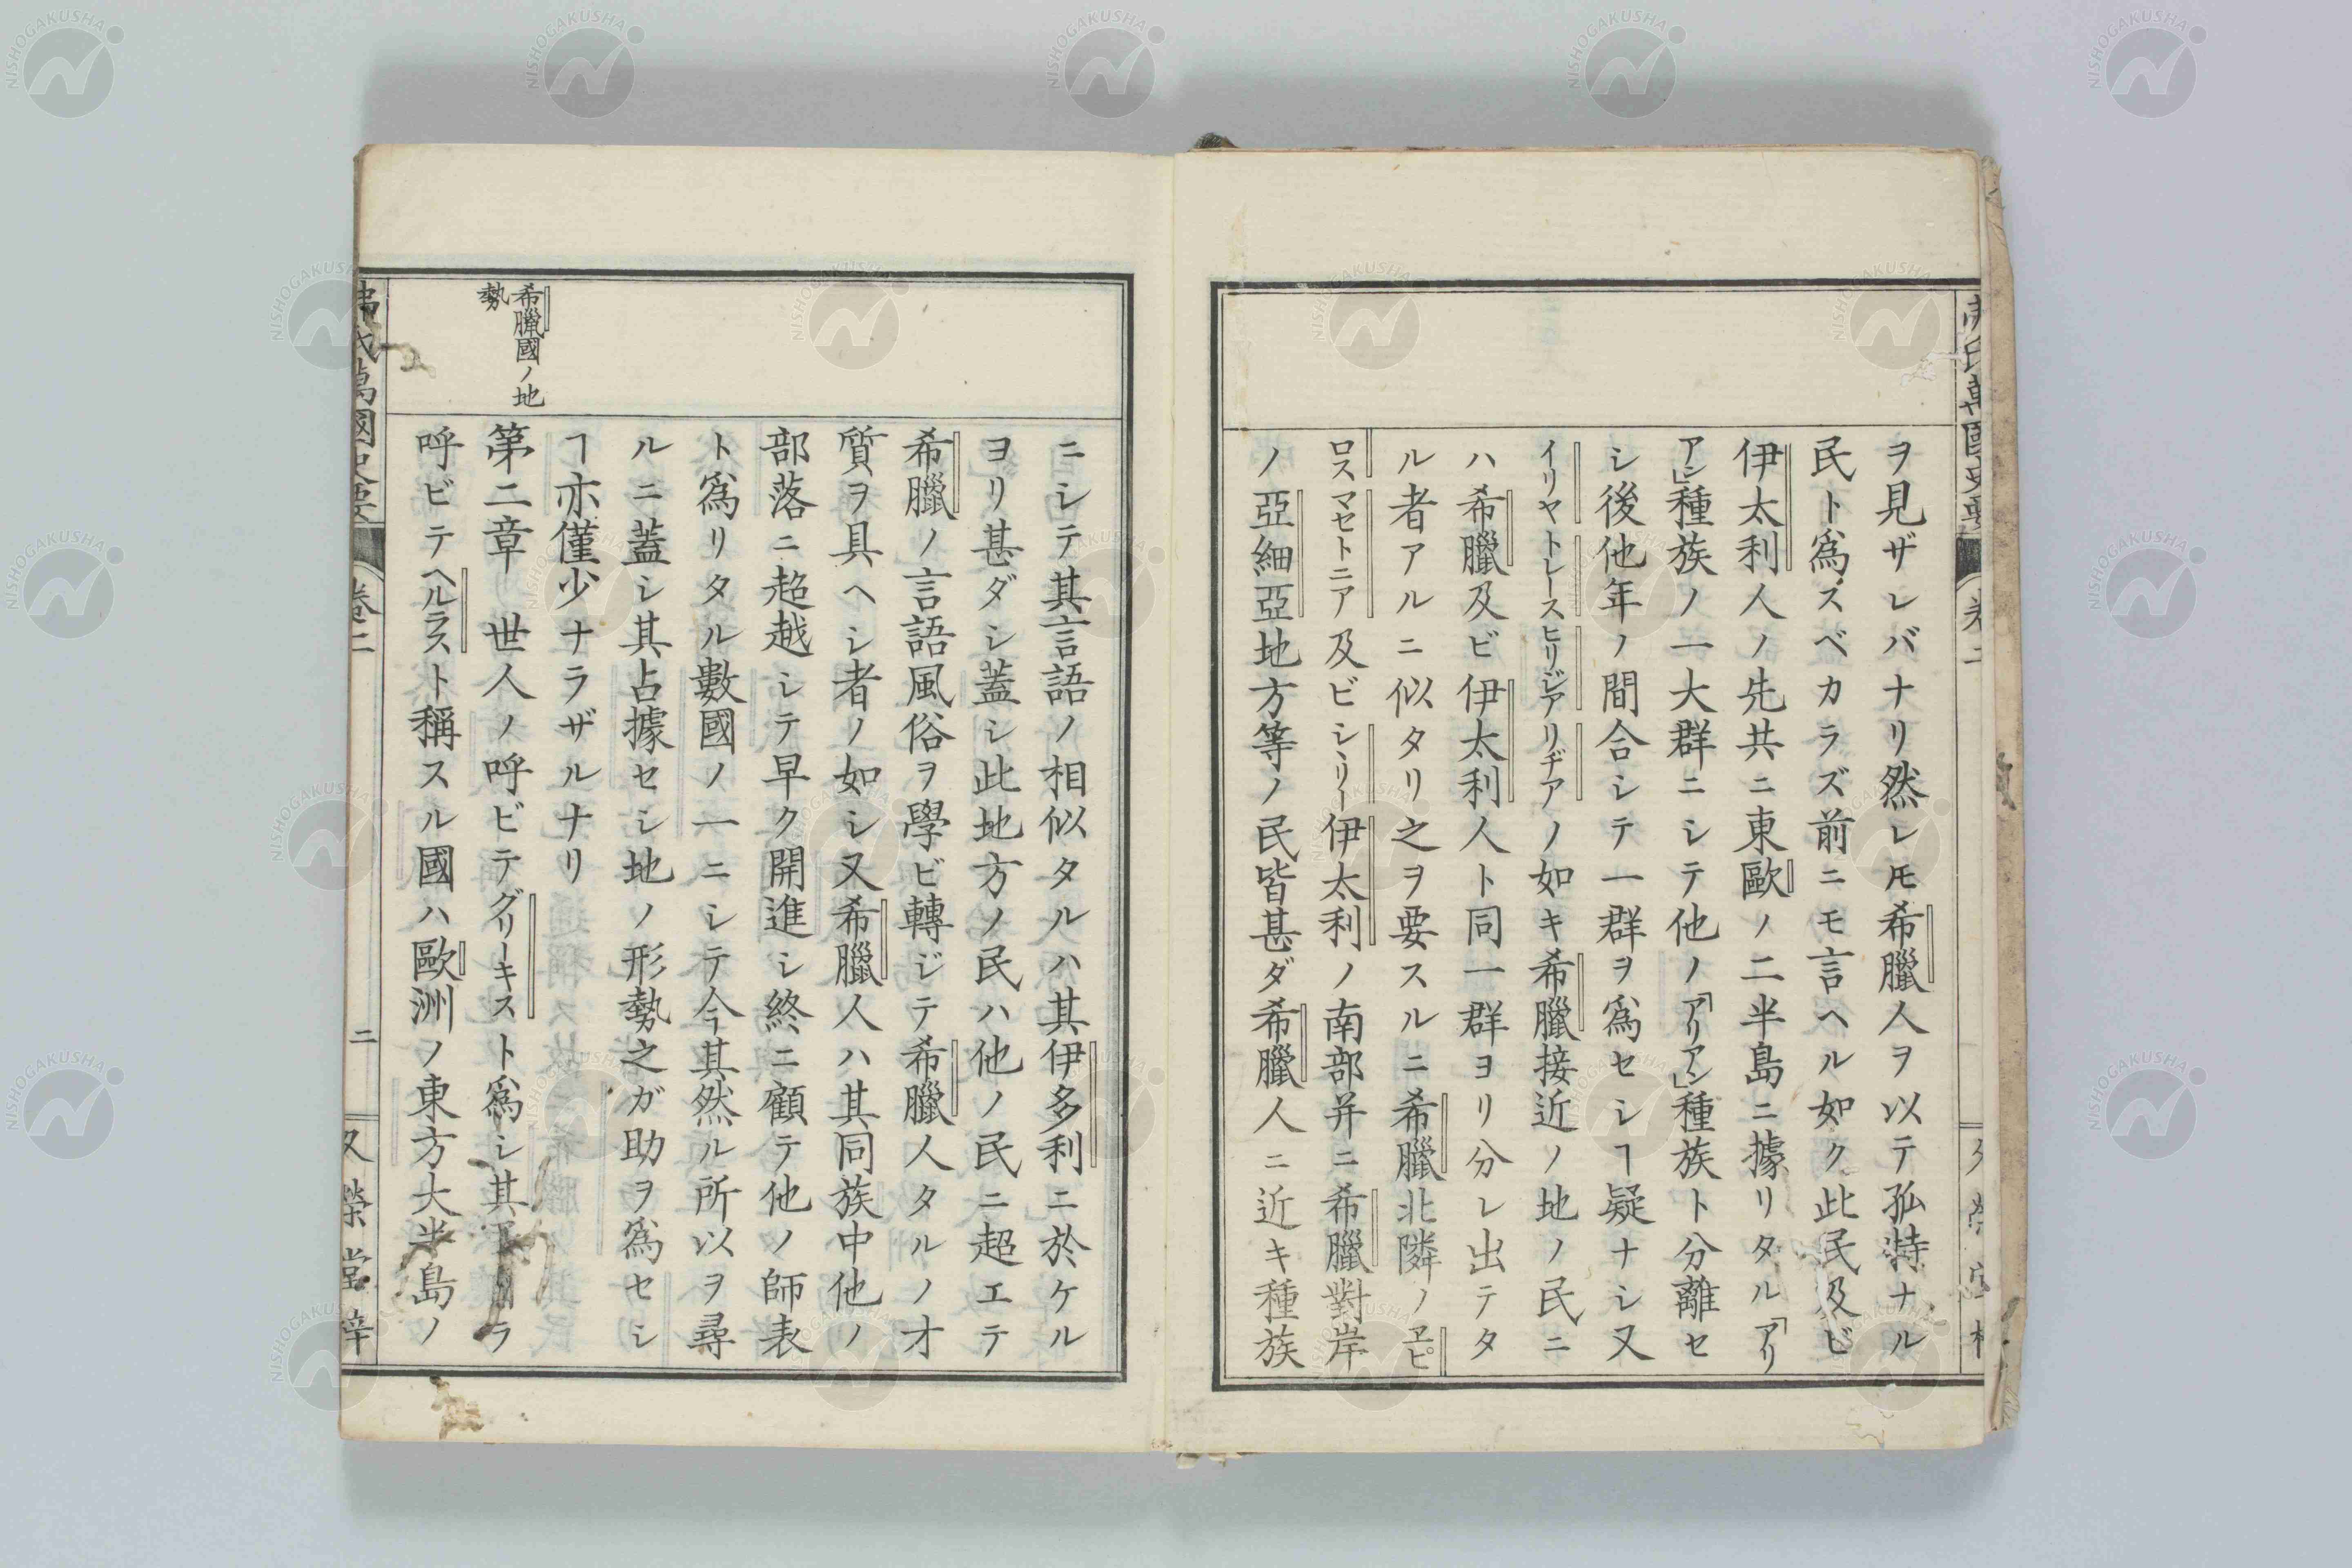 ヲ見ザレバナリ然レ𪜈希臘人ヲ以テ孤特ナル
民ト爲スベカラズ前ニモ言ヘル如ク此民及ビ
伊太利人ノ先共ニ東歐ノ二半島ニ據リタル「アリ
アン」種族ノ一大群ニシテ他ノ「アリアン」種族ト分離セ
シ後他年ノ間合シテ一群ヲ爲セシヿ疑ナシ又
イリヤトレースヒリジアリヂアノ如キ希臘接近ノ地ノ民ニ
ハ希臘及ビ伊太利人ト同一群ヨリ分レ出テタ
ル者アルニ似タリ之ヲ要スルニ希臘北隣ノヱピ
ロスマセトニア及ビシヽリー伊太利ノ南部并ニ希臘對岸
ノ亞細亞地方等ノ民皆甚ダ希臘人ニ近キ種族
卷二
ニシテ其言語ノ相似タルハ其伊多利ニ於ケル
ヨリ甚ダシ蓋シ此地方ノ民ハ他ノ民ニ超エテ
希臘ノ言語風俗ヲ學ビ轉ジテ希臘人タルノオ
質ヲ具ヘシ者ノ如シ又希臘人ハ其同族中他ノ
部落ニ超越シテ早ク開進シ終ニ顧テ他ノ師表
ト爲リタル數國ノ一ニシテ今其然ル所以ヲ尋
ルニ蓋シ其占據セシ地ノ形勢之ガ助ヲ爲セシ
ヿ亦僅少ナラザルナリ
希臘國ノ地
勢
第二章 世人ノ呼ビテグリーキスト爲シ其ラ
呼ビテヘルラスト稱スル國ハ歐洲ノ東方大半島ノ
萬國史要
卷二
二
又榮堂梓